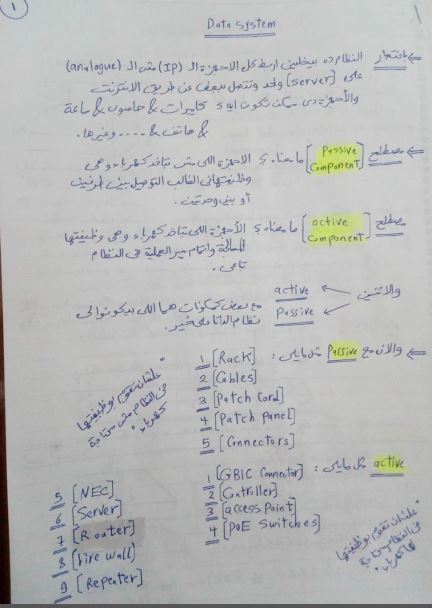 1
Data system
باختصار النظام ده بيخليني اربط كل الاجهزة الـ (IP) مش الـ (analogue)
على [server] واحد وتتصل ببعض عن طريق الانترنت
والأجهزة دي ممكن تكون ايه ؟ كاميرات & حاسوب & سماعة
& هاتف & .... وغيرها.
مصطلح [Passive component] ما معناه ؟ الاجهزة اللى مش بتاخد كهرباء وهي
وظيفتها في الغالب التوصيل بين طرفين
أو بين وحدتين.
مصطلح [active component] ما معناه ؟ الأجهزة اللى بتاخد كهرباء وهي وظيفتها
المعالجة واتمام سير العملية في النظام
بتاعي.
والاتنين active
Passive
مع بعض كمكونات هما اللى بيكونوا لي
نظام الداتا
والآن مع Passive مثل مايلي :
1 [Rack]
2 [Cables]
3 [Patch Cord]
4 [Patch panel]
5 [Connectors]
"علشان تقوم بوظيفتها
في النظام مش محتاجة
كهرباء"
active مثل مايلي :
1 [GBIC Connector]
2 [Controller]
3 [access Point]
4 [PoE Switches]
5 [NEC]
6 [Server]
7 [Router]
8 [Fire wall]
9 [Repeater]
"علشان تقوم بوظيفتها
في النظام محتاجة
لها كهرباء"